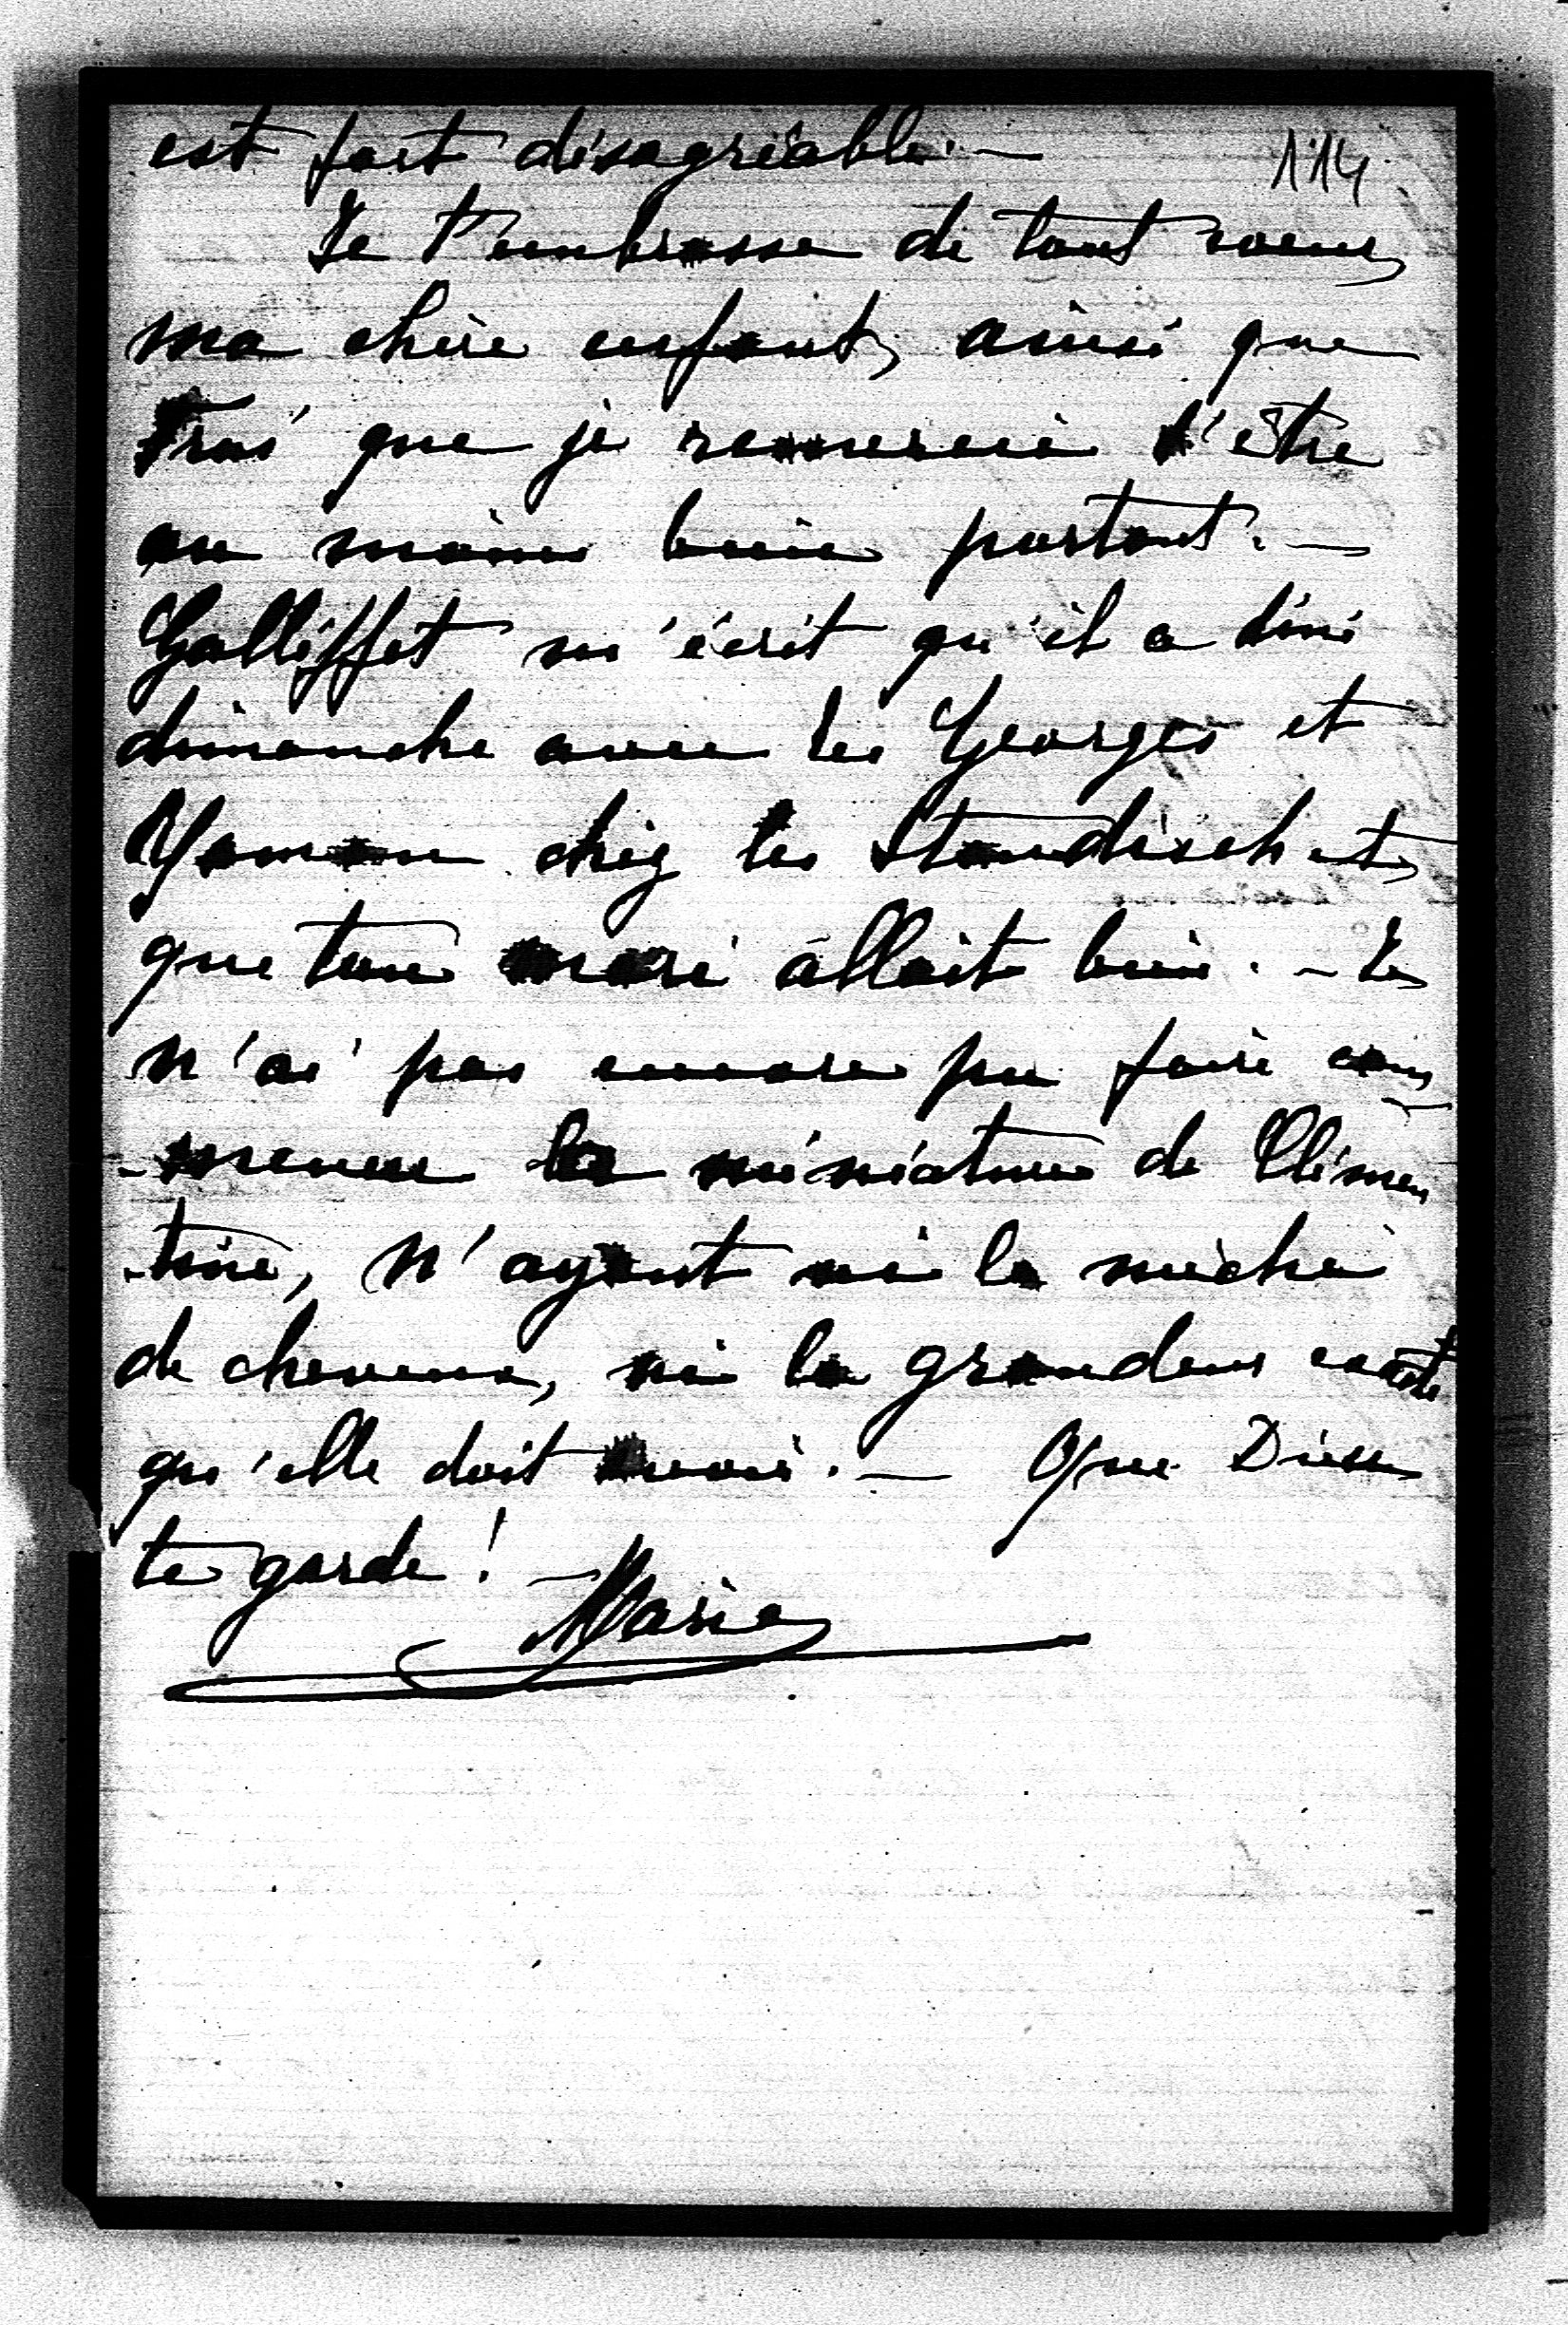 est fort désagréable. —
114
Je t'embrasse de tout coeur,
ma chère enfant, ainsi que
que je remercie d'être
au moins bien portant. —
Galliffet m'écrit qu'il a diné
dimanche avec les Georges et
chez les Standisch et
que ton mari allait bien. — Je
n'ai pas encore pu faire com
-mencer la miniature de Clémen
-tine, n'ayant ni la mèche
de cheveux, ni la grandeur exacte
qu'elle doit avoir. — Que Dieu
te garde ! — Marie